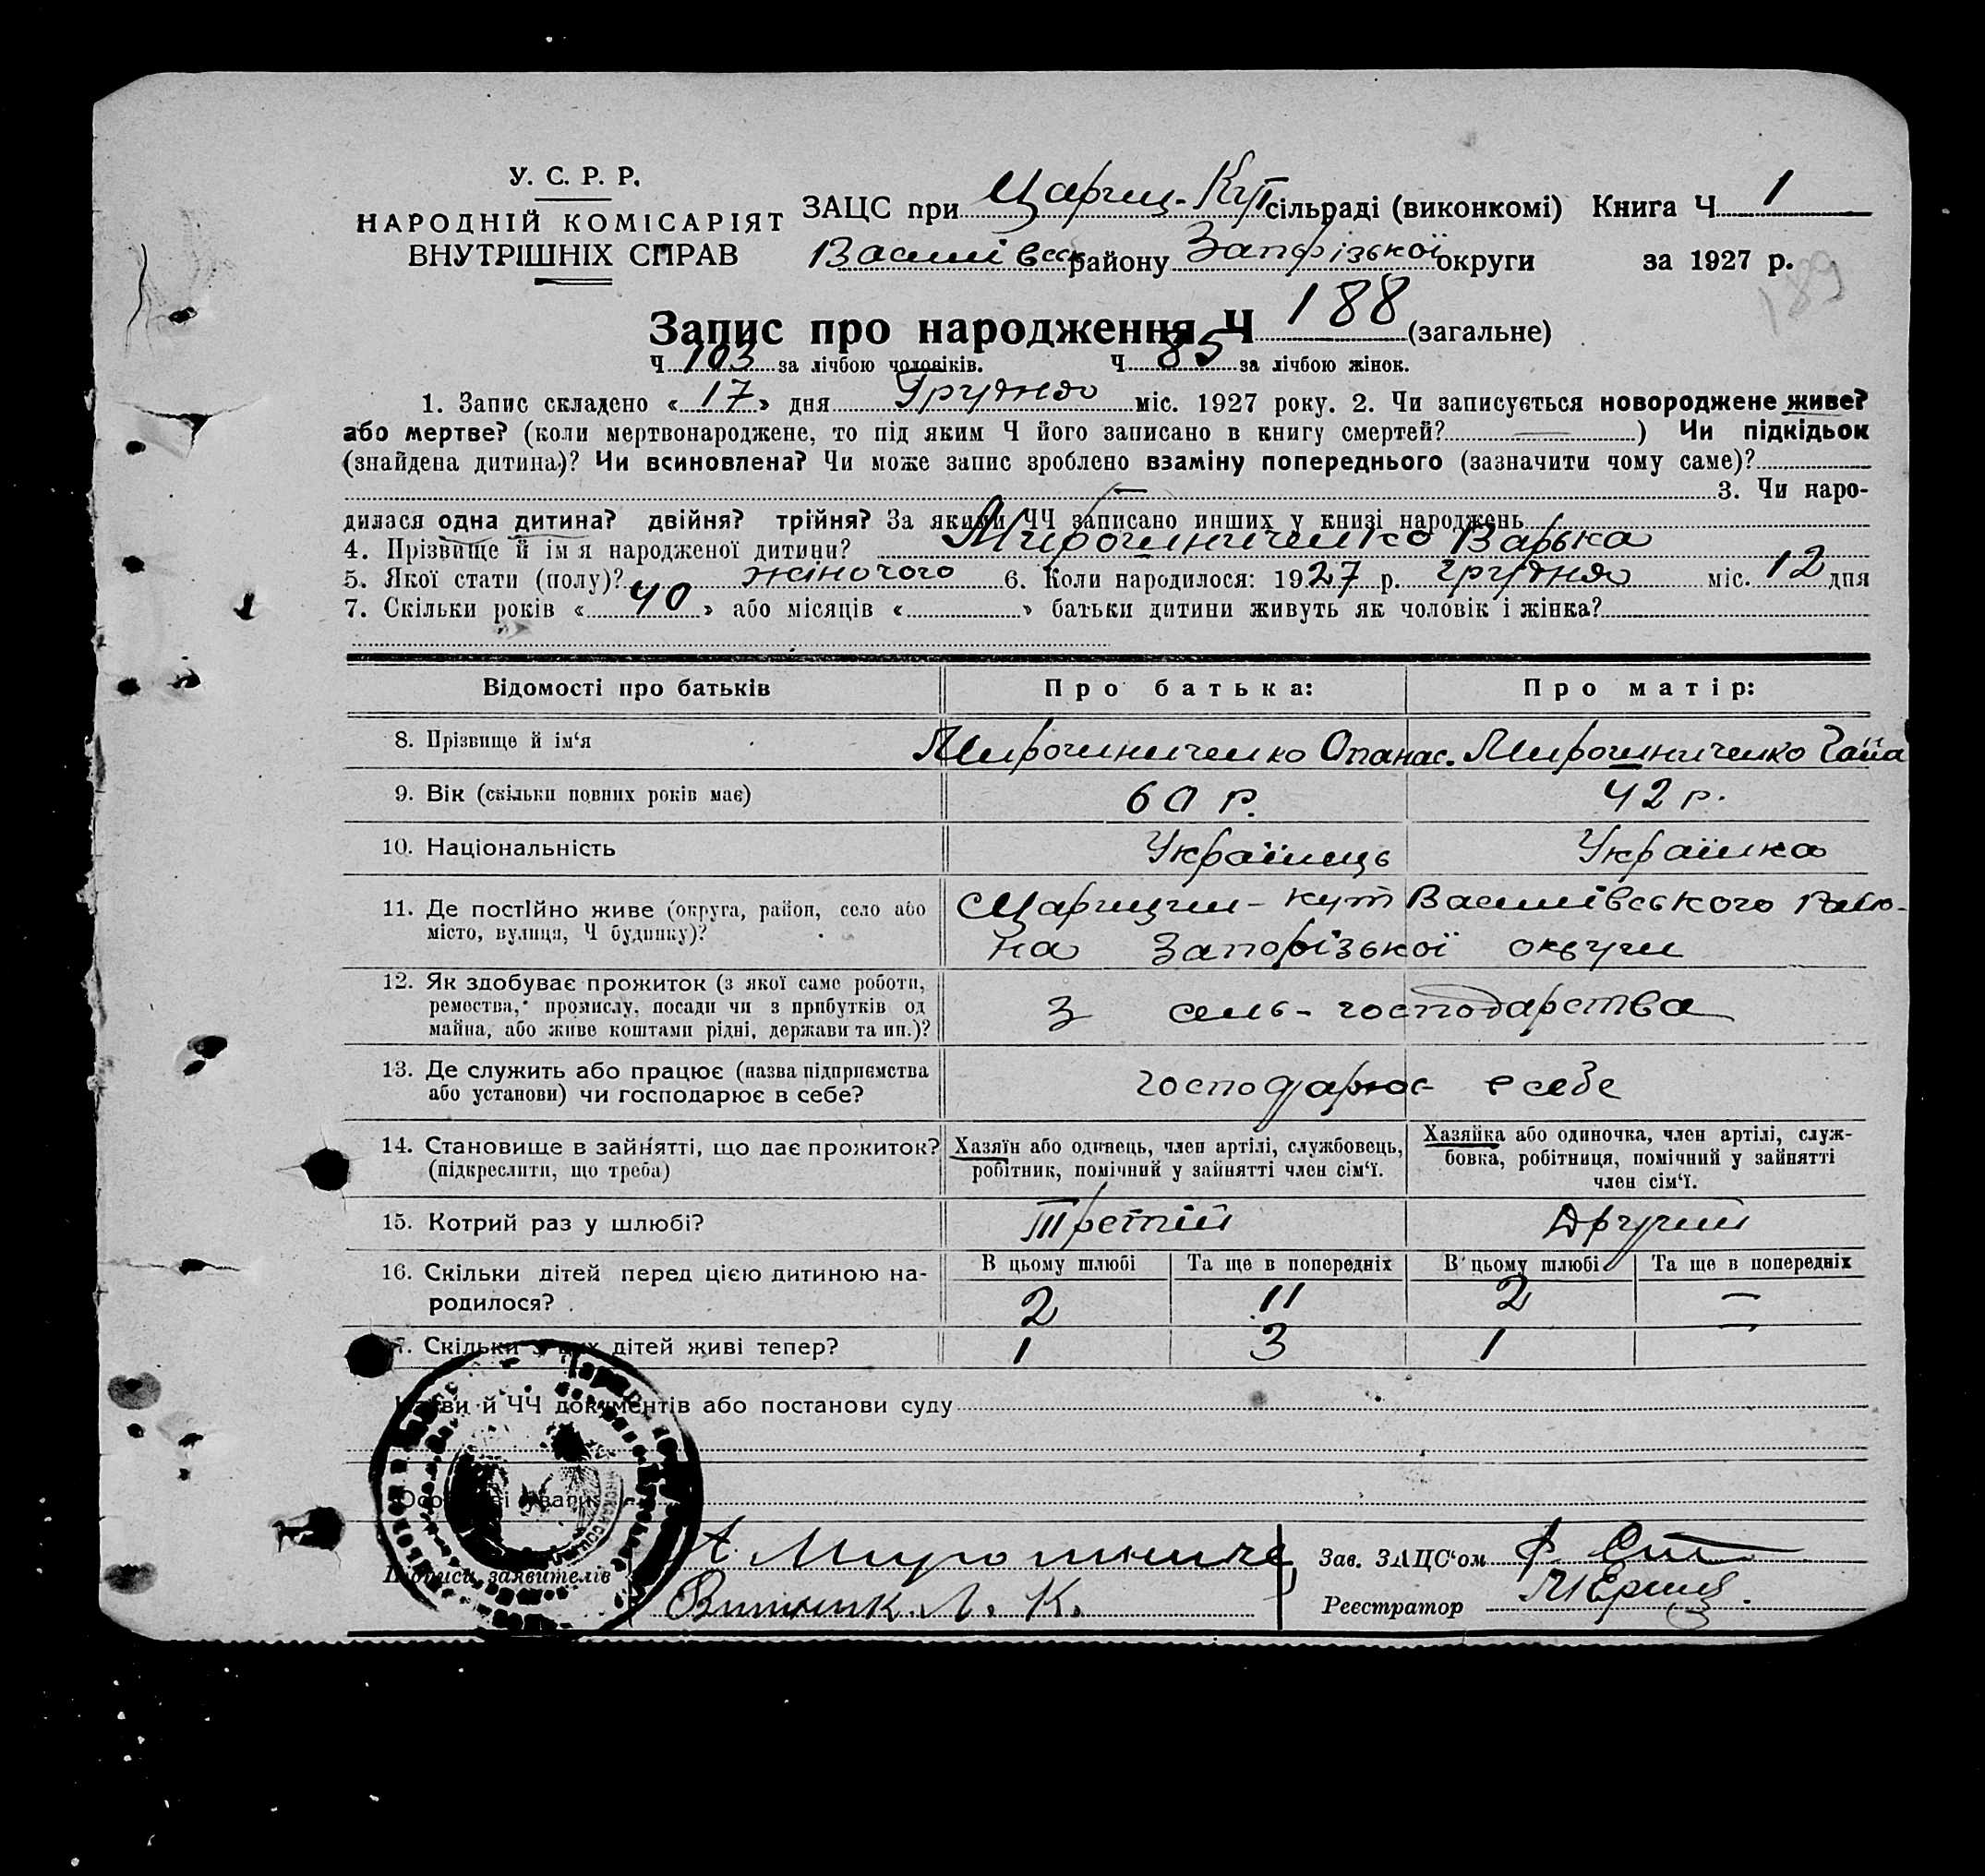 У. С. Р. Р.
НАРОДНІЙ КОМІСАРІЯТ
ВНУТРІШНІХ СПРАВ
ЗАЦС при Цариц.-Кут сільраді (виконкомі) Книга Ч 1
Василівськ району Запорізької округи за 1927 р.
189
Запис про народження Ч 188 (загальне)
Ч 103 за лічбою чоловіків. Ч 85 за лічбою жінок.
1. Запис складено « 17 » дня Грудня міс. 1927 року. 2. Чи записується новороджене живе?
або мертве? (коли мертвонароджене, то під яким Ч його записано в книгу смертей? — ) Чи підкідьок
(знайдена дитина)? Чи всиновлена? Чи може запис зроблено взаміну попереднього (зазначити чому саме)?
— 3. Чи наро-
дилася одна дитина? двійня? трійня? За якими ЧЧ записано инших у книзі народжень
4. Прізвище й ім я народженої дитини? Мирошниченко Варька
5. Якої стати (полу)? жіночого 6. Коли народилося: 1927 р. грудня міс. 12 дня
7. Скільки років « 40 » або місяців « » батьки дитини живуть як чоловік і жінка?
Відомості про батьків Про батька: Про матір:
8. Прізвище й ім‘я Мирошниченко Опанас. Мирошниченко
9. Вік (скільки повних років має) 60 р. 42 р.
10. Національність Українець Українка
11. Де постійно живе (округа, район, село або
місто, вулиця, Ч будинку)? Царицин-кут Василівського Райо-
на Запорізької округи
12. Як здобуває прожиток (з якої саме роботи,
ремества, промислу, посади чи з прибутків од
майна, або живе коштами рідні, держави та ин.)? З сель-господарства
13. Де служить або працює (назва підприємства
або установи) чи господарює в себе? господарює в себе
14. Становище в зайнятті, що дає прожиток?
(підкреслити, що треба)
Хазяїн або одинець, член артілі, службовець,
робітник, помічний у зайнятті член сім‘ї.
Хазяйка або одиночка, член артілі, служ-
бовка, робітниця, помічний у зайнятті
член сім‘ї.
15. Котрий раз у шлюбі? Третій Другий
16. Скільки дітей перед цією дитиною на-
родилося?
В цьому шлюбі Та ще в попередніх В цьому шлюбі Та ще в попередніх
2 11 2 —
Скільки дітей живі тепер? 1 3 1 —
й ЧЧ документів або постанови суду
Підписи заявителів А Мирошниче
Зав. ЗАЦС‘ом
Л. К.
Реєстратор